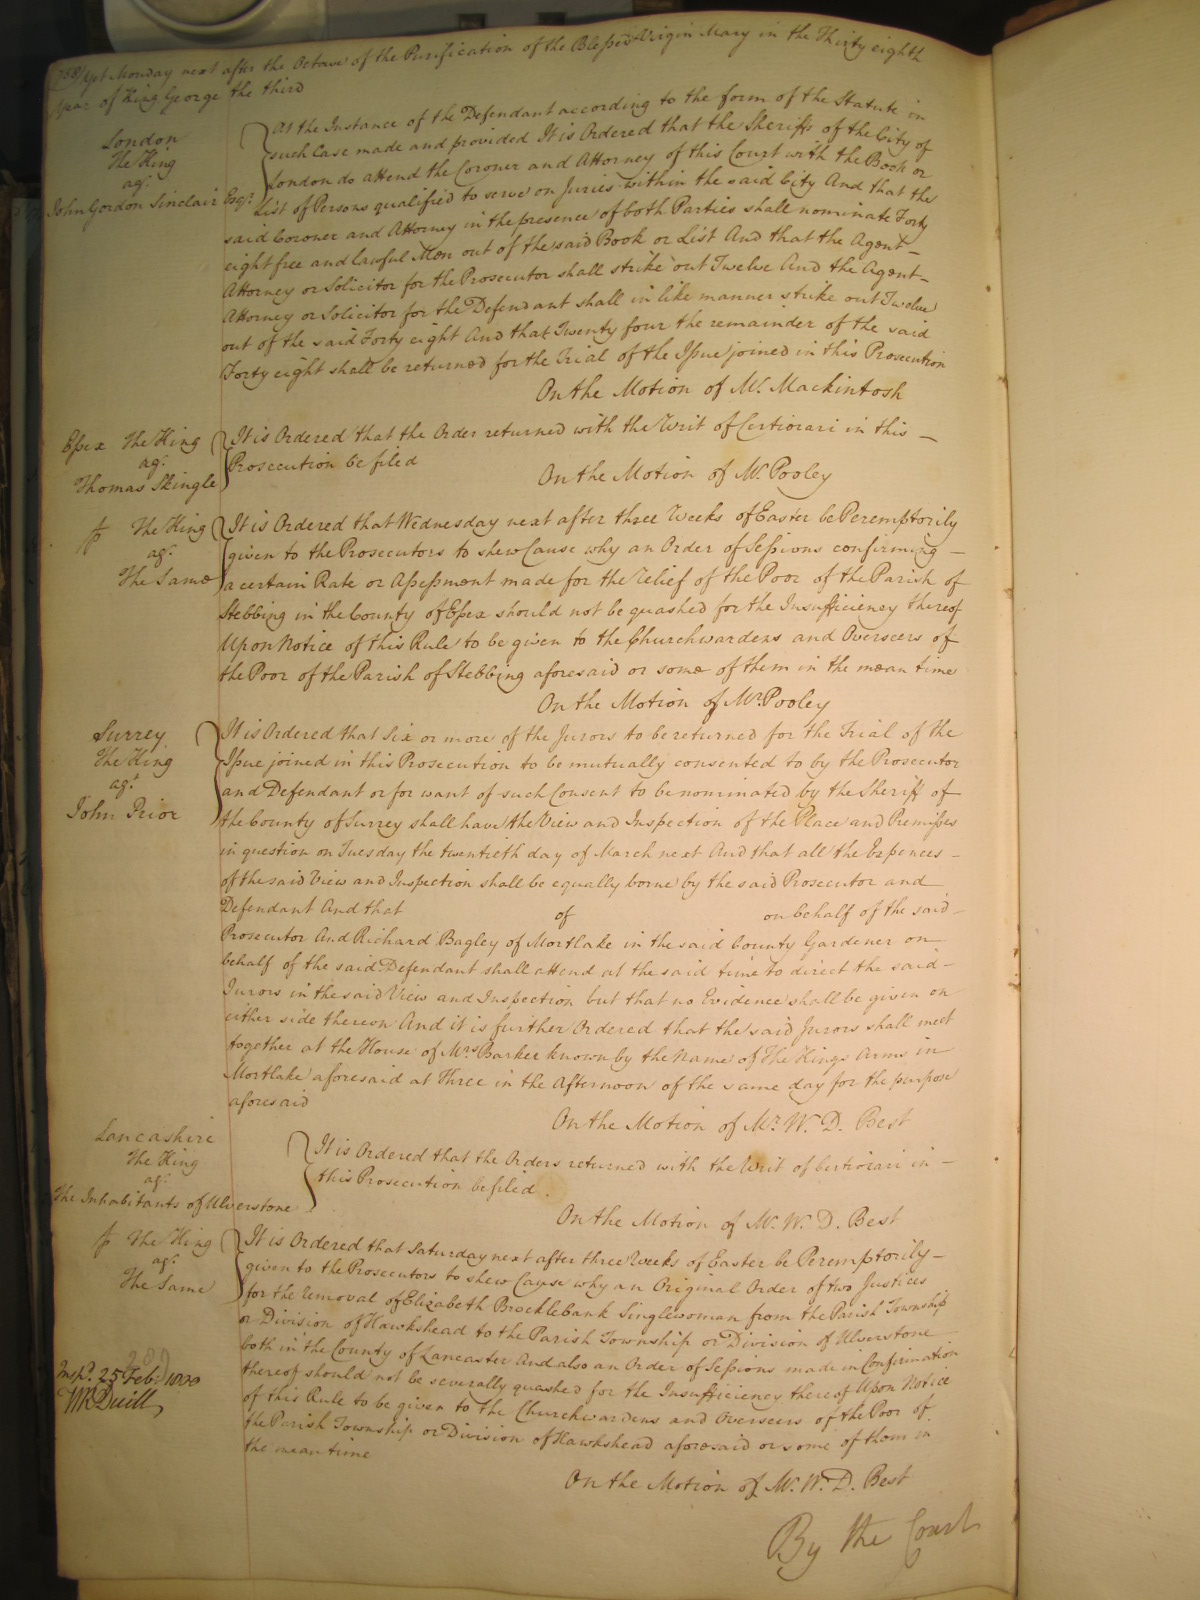 Monday next after the Octave of the Purification of the Blessed Virgin Mary in the Thirty eighth
year of King George the third
London
The King
agt
John Gordon Sinclair Esqr
At the Instance of the Defendant according to the form of the Statute in
such Case made and provided It is Ordered that the Sheriffs of the City of
London do attend the Coroner and Attorney of this Court with the Book or
List of Persons qualified to serve on Juries within the said City And that the
said Coroner and Attorney in the presence of both Parties shall nominate Forty
eight free and lawful Men out of the said Book or List And that the Agent
Attorney or Solicitor for the Prosecutor shall strike out Twelve And the Agent
Attorney or Solicitor for the Defendant shall in like manner strike out Twelve
out of the said Forty eight And that Twenty four the remainder of the said
Forty eight shall be returned for the Trial of the Issue joined in this Prosecution
On the Motion of Mr. Mackintosh
Essex The King
agt
Thomas Skingle
It is Ordered that the Order returned with the Writ of Certiorari in this
Prosecution be filed
On the Motion of Mr. Pooley
The King
agt
The Same
It is Ordered that Wednesday next after three Weeks of Easter be Peremptorily
given to the Prosecutors to shew Cause why an Order of Sessions confirming
a certain Rate or Assessment made for the relief of the Poor of the Parish of
Stebbing in the County of Essex should not be quashed for the Insufficiency thereof
Upon Notice of this Rule to be given to the Churchwardens and Overseers of
the Poor of the Parish of Stebbing aforesaid or some of them in the mean time
On the Motion of Mr. Pooley
Surrey
The King
agt
John Prior
It is Ordered that Six or more of the Jurors to be returned for the Trial of the
Issue joined in this Prosecution to be mutually consented to by the Prosecutor
and Defendant or for want of such Consent to be nominated by the Sheriff of
the County of Surrey shall have the View and Inspection of the Place and Premisses
in question on Tuesday the twentieth day of March next And that all the Expences
of the said View and Inspection shall be equally borne by the said Prosecutor and
Defendant And that of on behalf of the said
Prosecutor And Richard Bagley of Mortlake in the said County Gardener on
behalf of the said Defendant shall attend at the said time to direct the said
Jurors in the said View and Inspection but that no Evidence shall be given on
either side thereon And it is further Ordered that the said Jurors shall meet
together at the House of Mrs Barker known by the Name of The Kings Arms in
Mortlake aforesaid at Three in the Afternoon of the same day for the purpose
aforesaid
On the Motion of Mr. W. D. Best
Lancashire
The King
agt
The Inhabitants of Ulverstone
It is Ordered that the Orders returned with the Writ of Certiorari in
this Prosecution be filed.
On the Motion of Mr. W. D. Best
The King
agt
The Same
It is Ordered that Saturday next after three Weeks of Easter be Peremptorily
given to the Prosecutors to shew Cause why an Original Order of two Justices
for the removal of Elizabeth Brocklebank Singlewoman from the Parish Township
or Division of Hawkshead to the Parish Township or Division of Ulverstone
both in the County of Lancaster And also an Order of Sessions made in Confirmation
thereof should not be severally quashed for the Insufficiency thereof Upon Notice
of this Rule to be given to the Churchwardens and Overseers of the Poor of
the Parish Township or Division of Hawkshead aforesaid or some of them in
the mean time
25 Feb
On the Motion of Mr. W. D. Best
By the Court